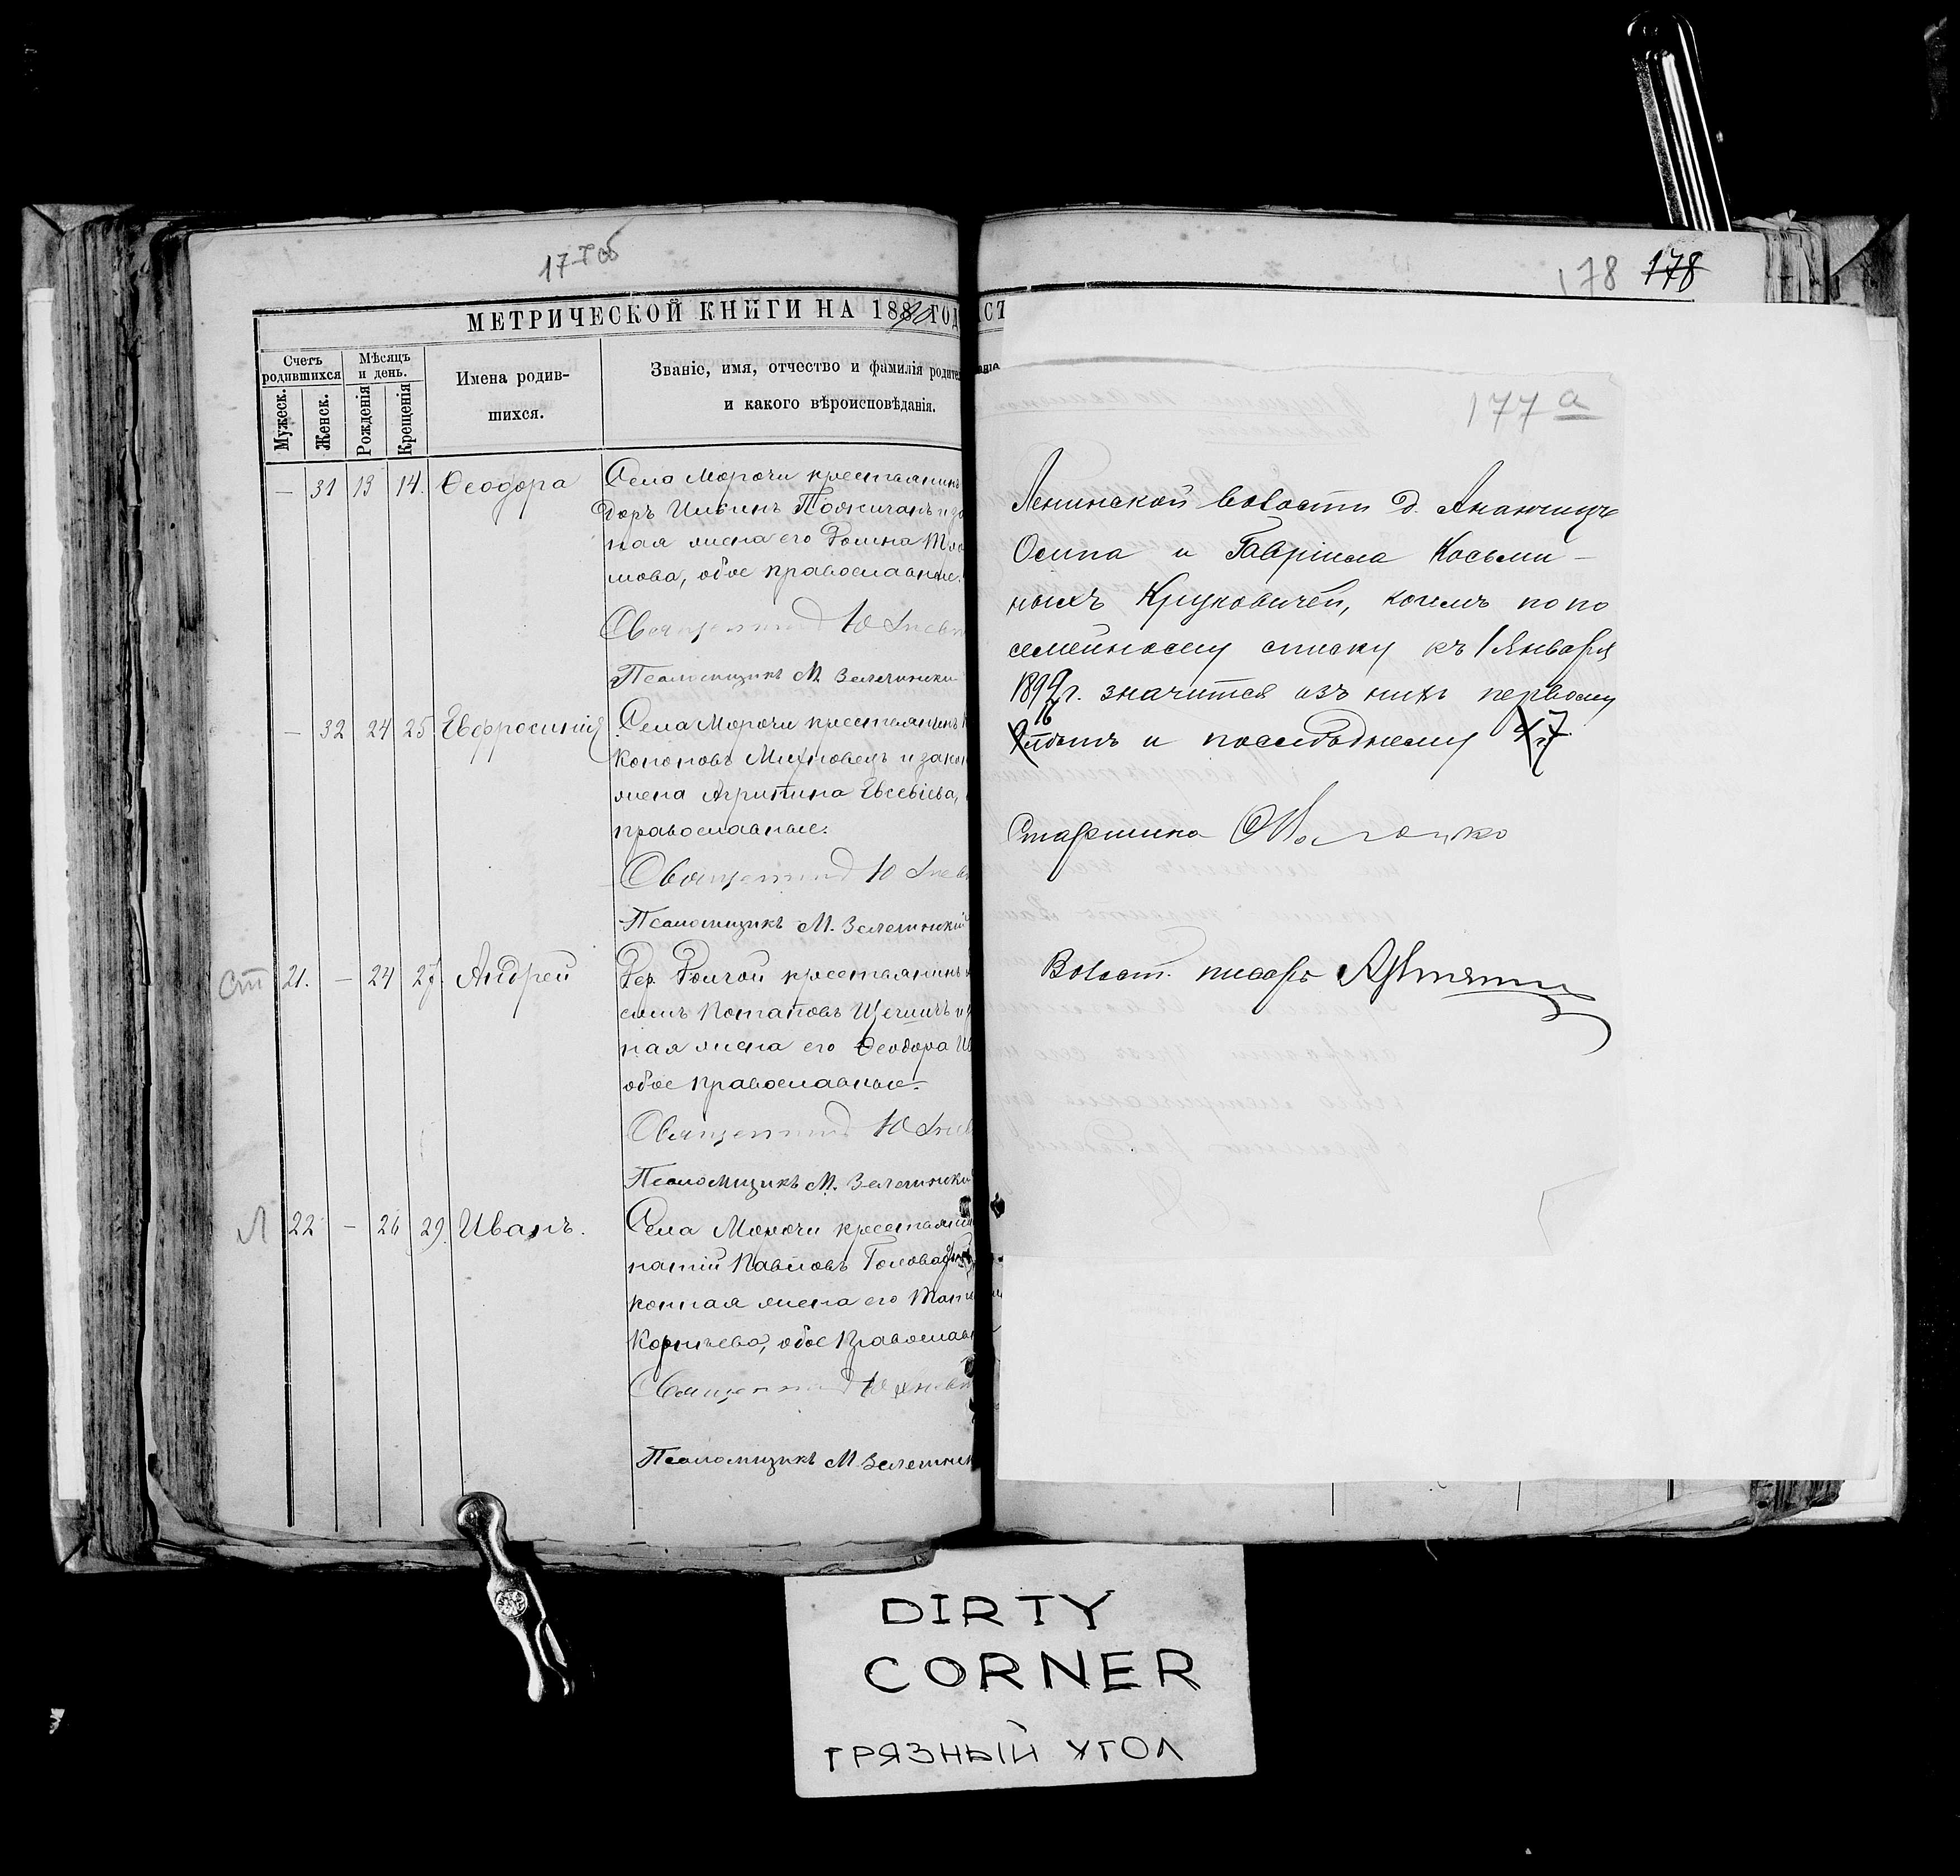 177об
МЕТРИЧЕСКОЙ КНИГИ НА 188 ГОД
Счетъ родившихся
Мѣсяцъ и день.
Мужеск.
Женск.
Рожденія
Крещенія
Имена родив-
шихся.
Званіе, имя, отчество и фамилія родите
и какого вѣроисповѣданія.
— 31 13 14. Ѳеодора
Села Морочи крестьянинъ
доръ Ильинъ
ная жена его
мова, обое православные.
Священник Юхнев
Псаломщикъ М.
— 32 24 25 Евфросинія
Села Морочи крестьянинъ
Кононовъ Михновецъ и закон
жена Агрипина Евсевіева,
православные.
Священник Юхнев
Псаломщикъ М.
Ст 21. — 24 27. Андрей
Дер. крестьянинъ
Потаповъ и
ная жена его Ѳеодора
обое православные.
Священник Юхнев
Псаломщикъ М.
Л 22 — 26 29. Иванъ.
Села Морочи крестьянин
натій Павловъ
конная жена его
Корнѣева, обое Православн
Священник Юхнев
Псаломщикъ М.
178 178
177 а
Ленинской волости д. Ананчицъ
Осипа и Гавріила Косьми-
ныхъ Круковичей, коимъ по по
семейному списку къ 1 Января
1899 г. значится изъ нихъ первому
16 лѣтъ и послѣднему 7
Старшина
Волост. писарь
DIRTY
CORNER
ГРЯЗНЫЙ УГОЛ